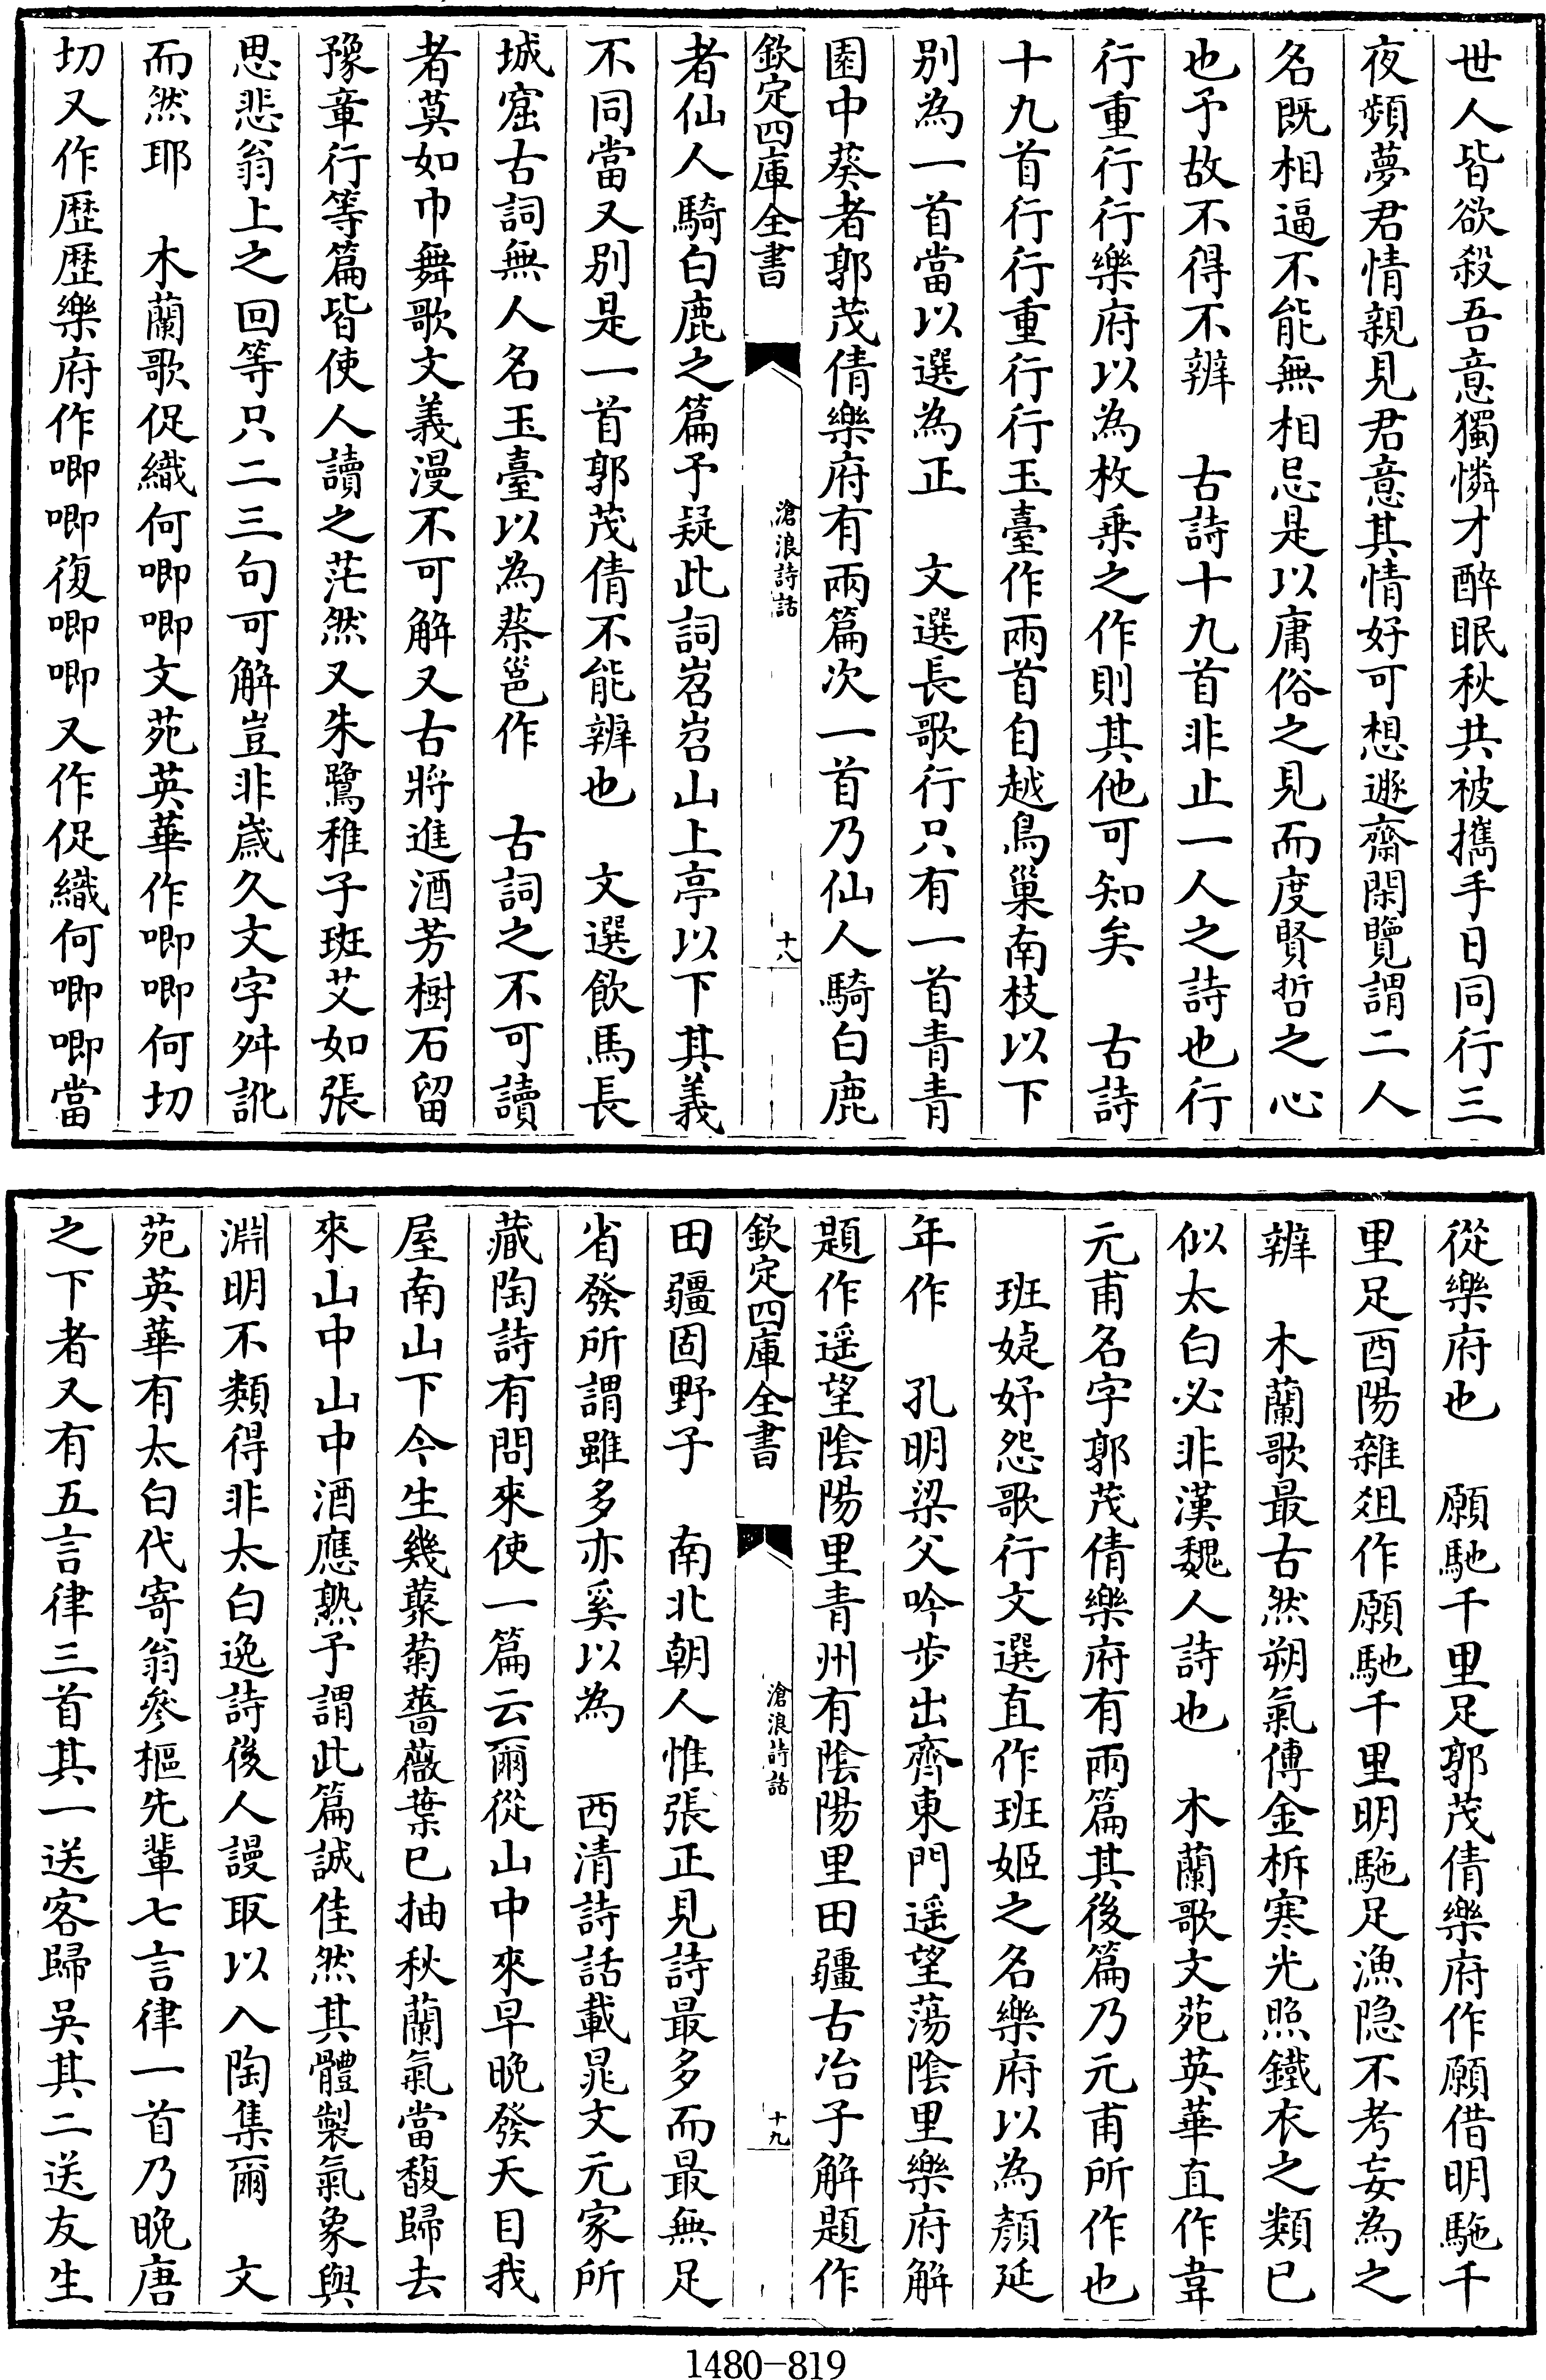 世人皆欲殺吾意獨憐才醉眠秋共被攜手日同行三
夜頻夢君情親見君意其情好可想遯齋閑覽謂二人
名既相逼不能無相忌是以庸俗之見而度賢哲之心
也予故不得不辨　古詩十九首非止一人之詩也行
行重行行樂府以為枚乗之作則其他可知矣　古詩
十九首行行重行行玉臺作兩首自越鳥巢南枝以下
别為一首當以選為正　文選長歌行只有一首青青
園中葵者郭茂倩樂府有兩篇次一首乃仙人騎白鹿
欽定四庫全書　滄浪詩話　十八
者仙人騎白鹿之篇予疑此詞岧岧山上亭以下其義
不同當又别是一首郭茂倩不能辨也　文選飲馬長
城窟古詞無人名玉臺以為蔡邕作　古詞之不可讀
者莫如巾舞歌文義漫不可解又古將進酒芳樹石留
豫章行等篇皆使人讀之茫然又朱鷺稚子斑艾如張
思悲翁上之回等只二三句可解豈非歳久文字舛訛
而然耶　木蘭歌促織何唧唧文苑英華作唧唧何切
切又作歴歴樂府作唧唧復唧唧又作促織何唧唧當
從樂府也　願馳千里足郭茂倩樂府作願借明駞千
里足酉陽雜俎作願馳千里明駞足漁隐不考妄為之
辨　木蘭歌最古然朔氣傳金柝寒光照鐵衣之類已
似太白必非漢魏人詩也　木蘭歌文苑英華直作韋
元甫名字郭茂倩樂府有兩篇其後篇乃元甫所作也
　班婕妤怨歌行文選直作班姬之名樂府以為顔延
年作　孔明梁父吟步出齊東門遥望蕩陰里樂府解
題作遥望陰陽里青州有陰陽里田疆古冶子解題作
欽定四庫全書　滄浪詩話　十九
田疆固野子　南北朝人惟張正見詩最多而最無足
省發所謂雖多亦奚以為　西清詩話載晁文元家所
藏陶詩有問來使一篇云爾從山中來早晚發天目我
屋南山下今生幾藂菊薔薇葉已抽秋蘭氣當馥歸去
來山中山中酒應熟予謂此篇誠佳然其體製氣象與
淵明不類得非太白逸詩後人謾取以入陶集爾　文
苑英華有太白代寄翁參樞先輩七言律一首乃晚唐
之下者又有五言律三首其一送客歸吳其二送友生
1480-819